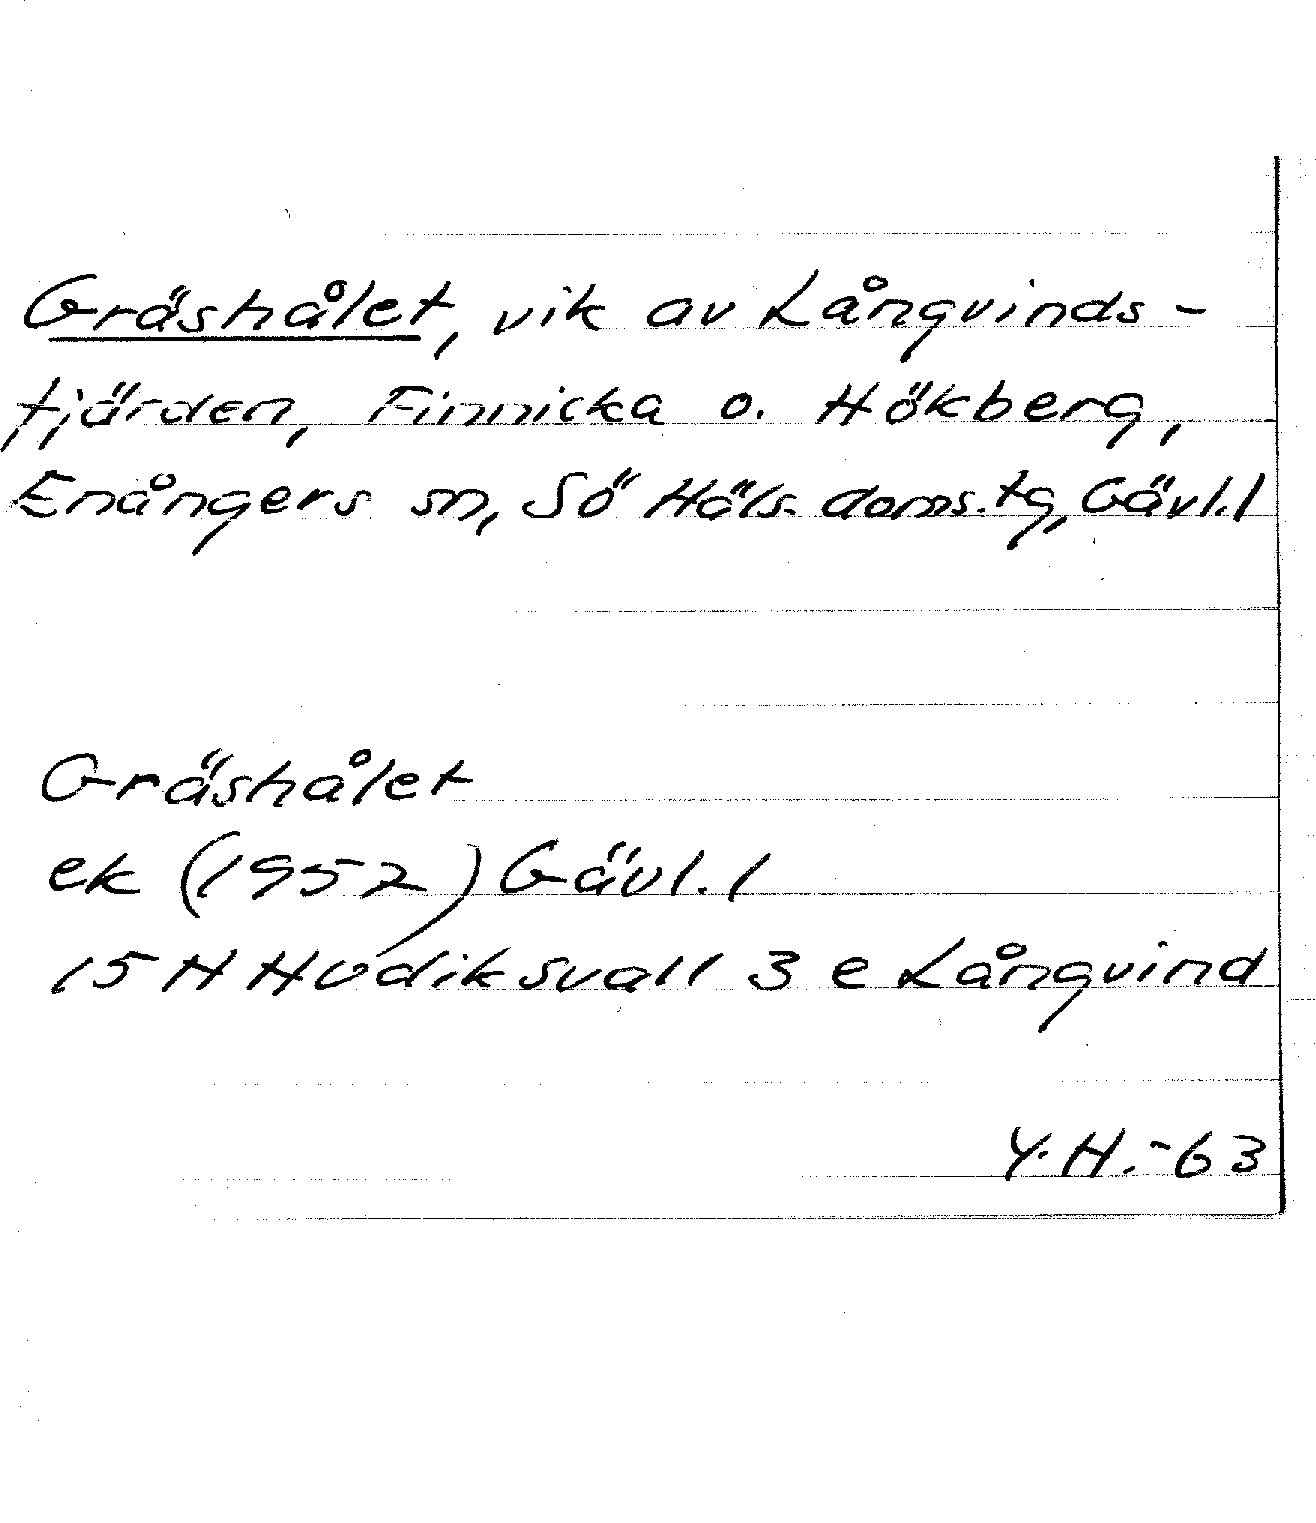 Gräshålet, vik av Långvinds-
fjärden, Finnicka o. Hökberg,
Enångers sn, Sö Häls. doms.tg, Gävl.l
Gräshålet
ek (1952) Gävl.l
15 H Hudiksvall 3 e Långvind
Y.H.-63